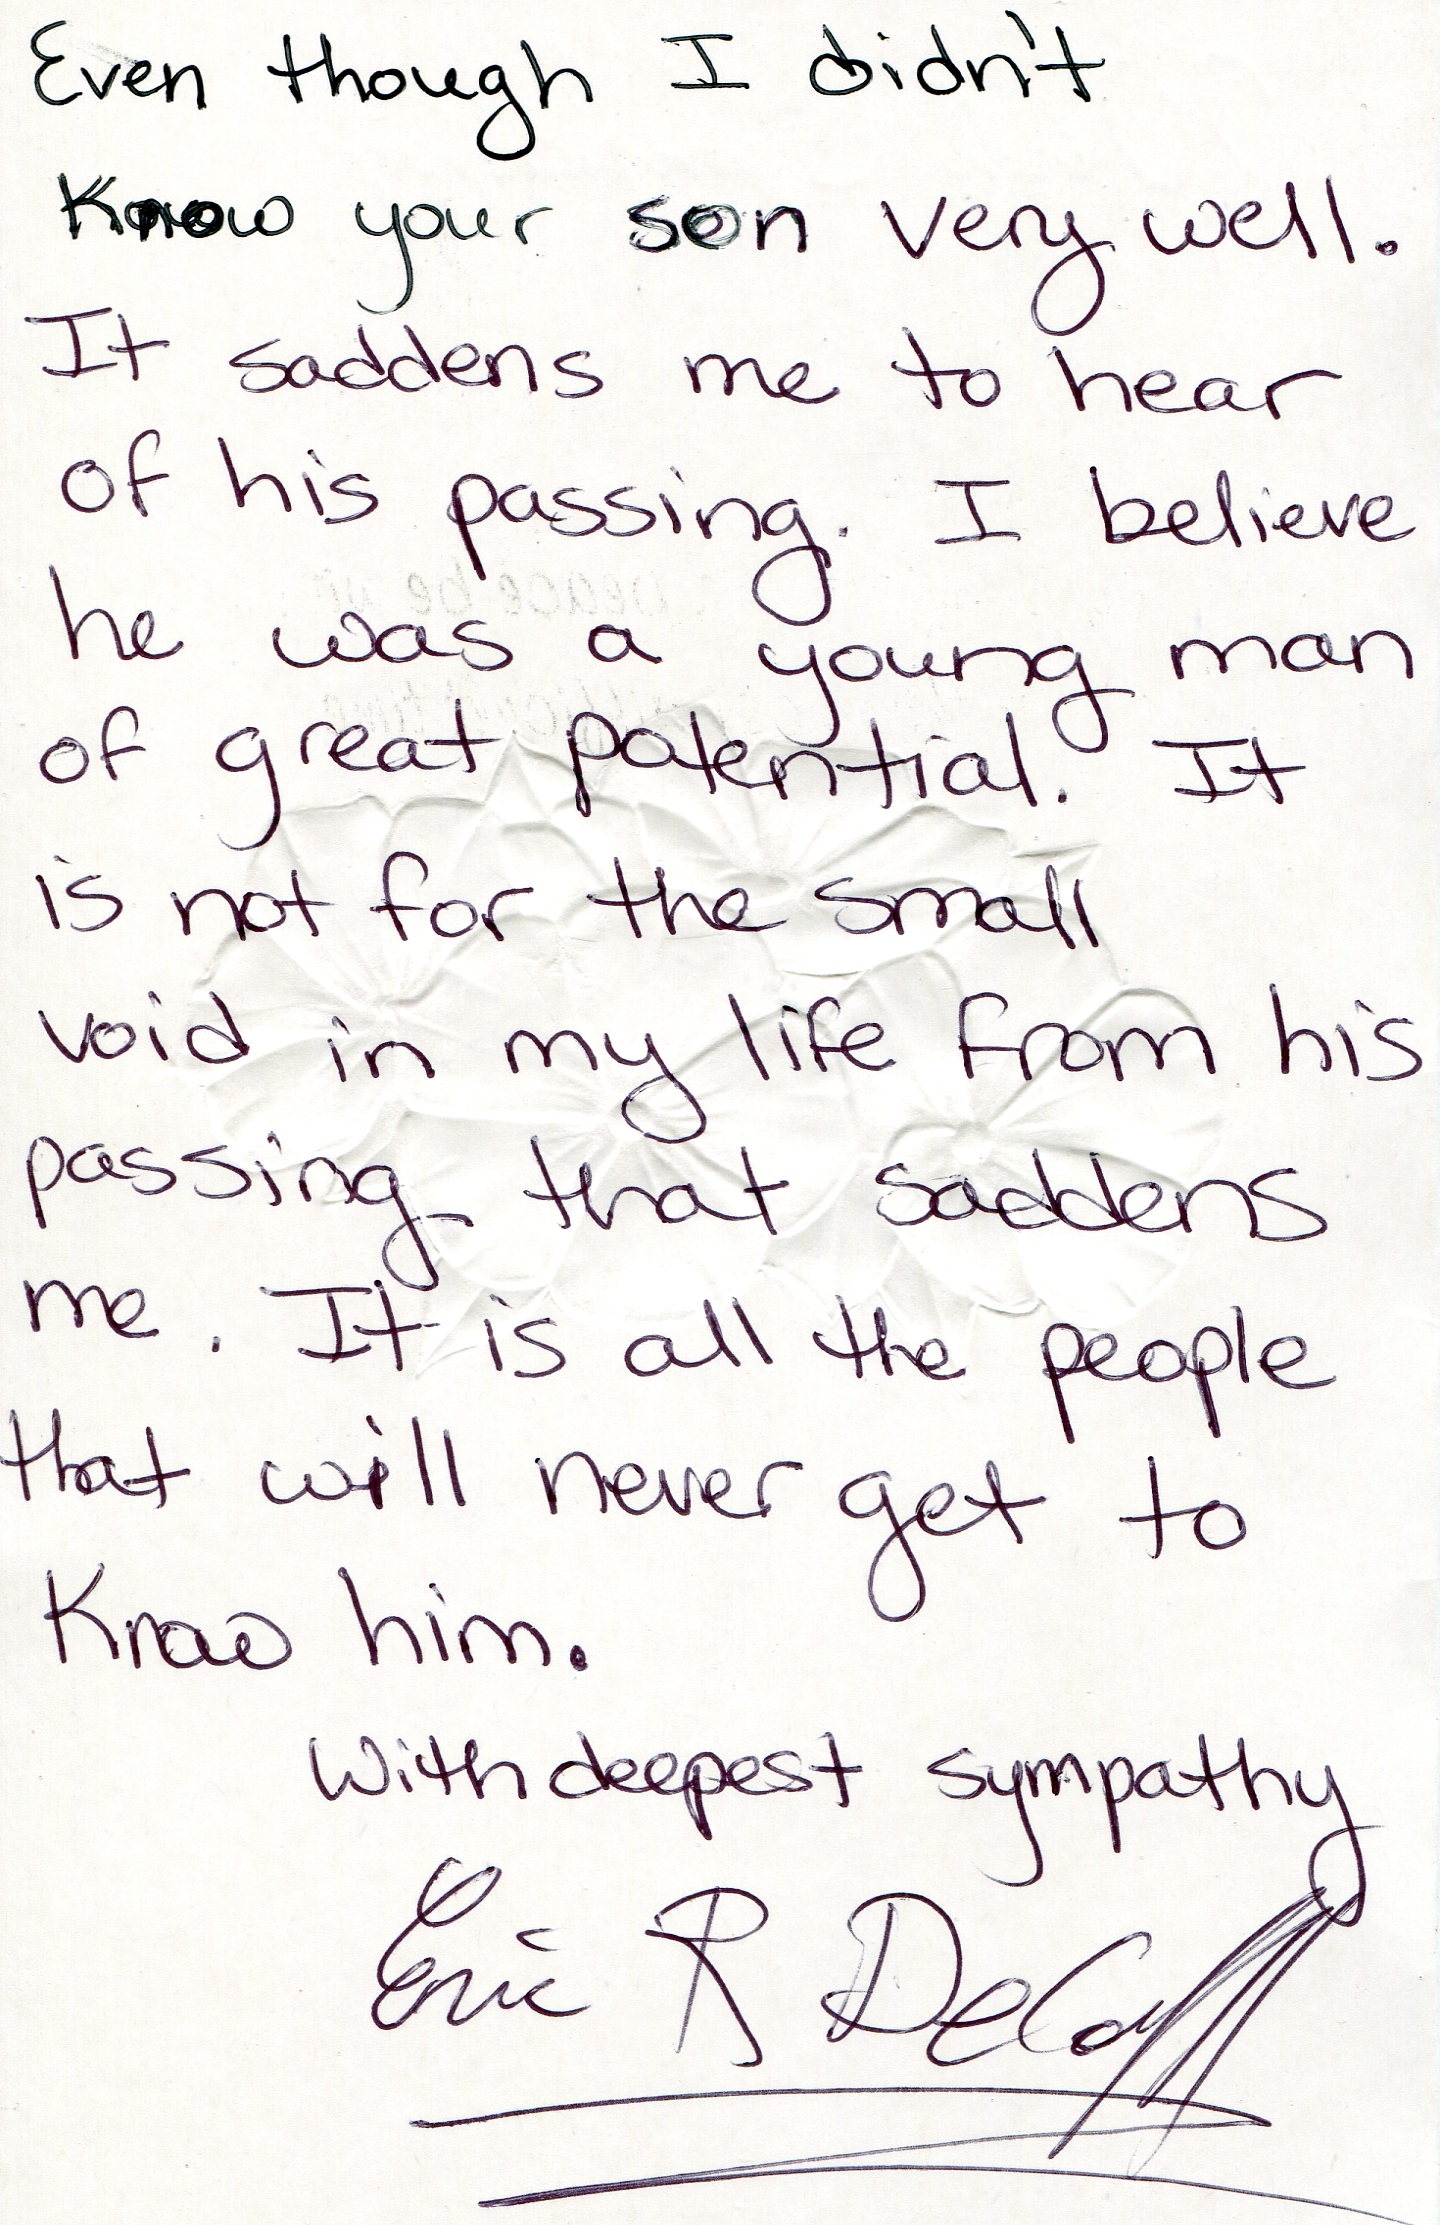 Even though I didn't
Know your son very well.
It saddens me to hear
of his passing. I believe
he was a young man
of great potential. It
is not for the small
void in my life from his
passing that saddens
me. It is all the people
that will never get to
Know him.
With deepest sympathy
Eric R